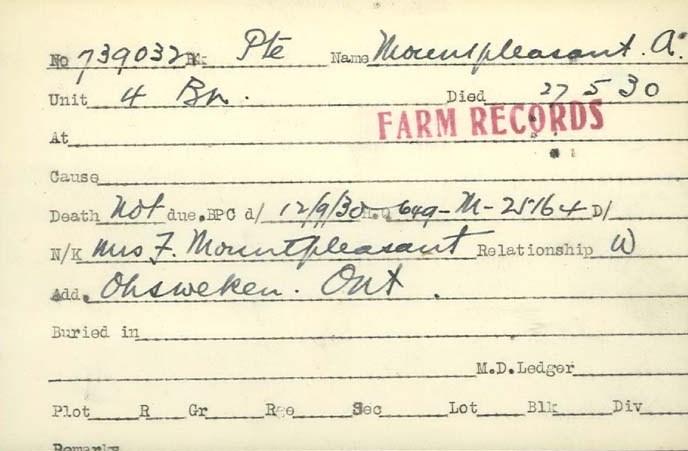 No 739032 Rk Pte Name Mountpleasant. A.
Unit 4 Bn. Died 27 5 30
At FARM RECORDS
Cause
Death Not due.BPC d/ 12/9/30 H.Q 649-M-25164 D/
N/K Mrs F. Mountpleasant Relationship W
Add. Ohsweken. Ont.
Buried in
M.D.Ledger
Plot R Gr Rge Sec Lot Blk Div
Remarks